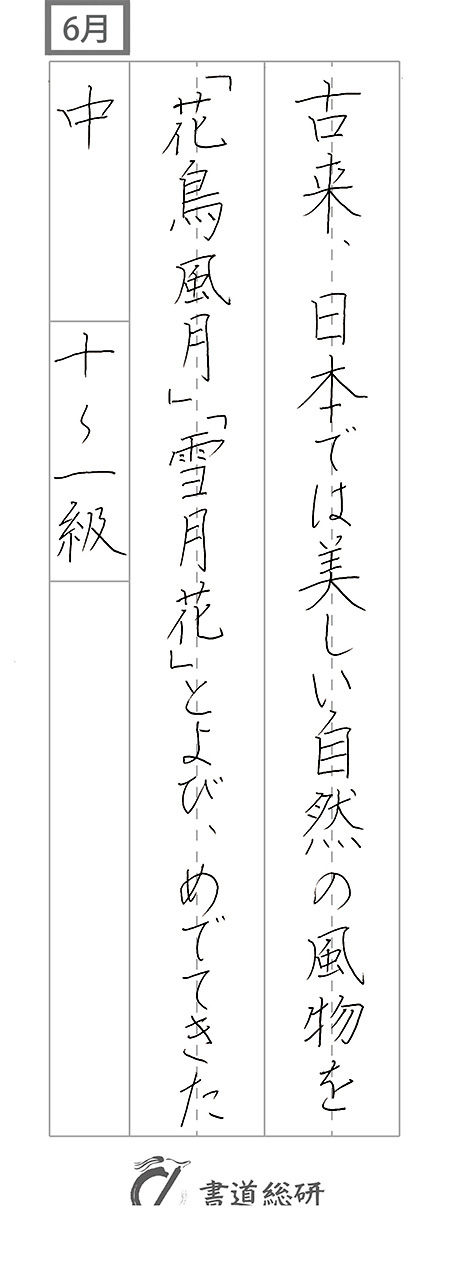 6月
古来、日本では美しい自然の風物を
「花鳥風月」「雪月花」とよび、めでてきた
中
十〜一級
書道総研